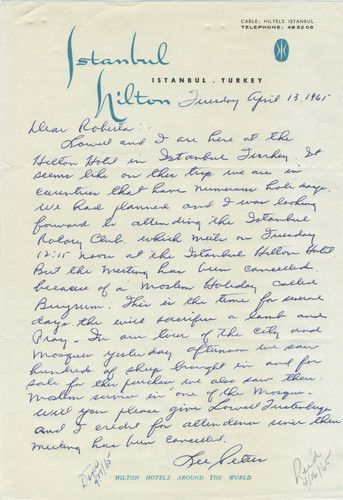 CABLE: HILTELS ISTANBUL
TELEPHONE: 483200
Istanbul
Hilton
ISTANBUL . TURKEY
Tuesday April 13, 1965
Dear Roberta:
Lowell and I are here at the
Hilton Hotel in Istanbul Turkey. It
seems like on this trip we are in
countries that have numerous holidays.
We had planned and I was looking
forward to attending the Istanbul
Rotary Club. which meets on Tuesday
12:15 noon at the Istanbul Hilton Hotel
But the meeting has been cancelled
because of a Moslem Holiday called
This is the time for several
days the will sacrifice a lamb and
Pray - In our tour of the city and
Mosque yesterday afternoon we saw
hundreds of sheep brought in and for
sale for this purpose we also saw their
Moslem service in one of the Mosque.
Will you please give Lowell
and I credit for attendance since their
meeting has been cancelled.
Lee Peters
4/17/65
Rec'd
4/16/65
HILTON HOTELS AROUND THE WORLD